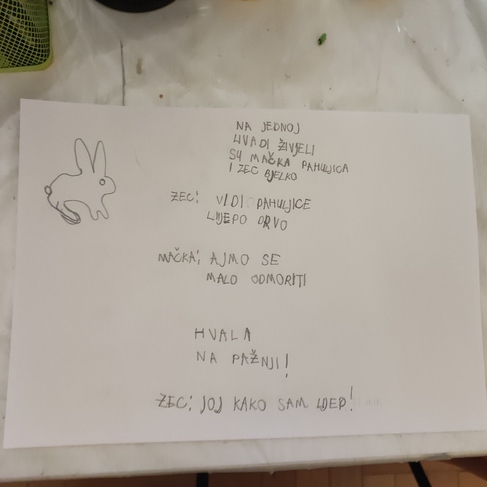 NA JEDNOJ
LIVADI ŽIVJELI
SU MAČKA PAHULJICA
I ZEC BJELKO
ZEC: VIDI PAHULJICE
LIJEPO DRVO
MAČKA: AJMO SE
MALO ODMORITI
HVALA
NA PAŽNJI!
ZEC: JOJ KAKO SAM LIJEP!